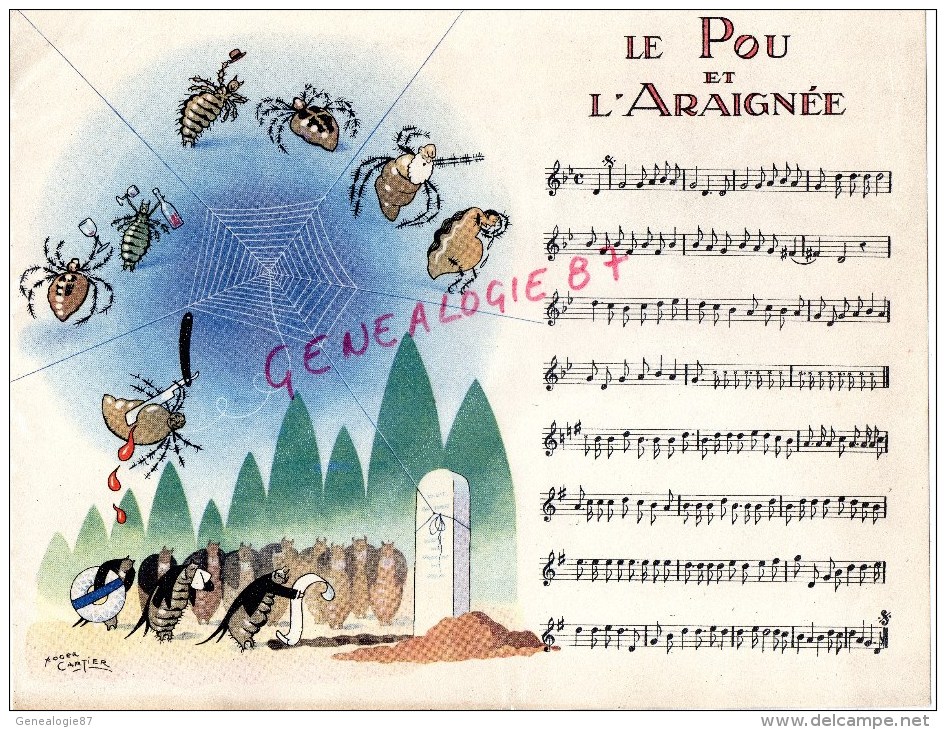 LE POU
ET
L'ARAIGNÉE
GENEALOGIE 87
ROGER
CARTIER
Genealogie87
www.delcampe.net